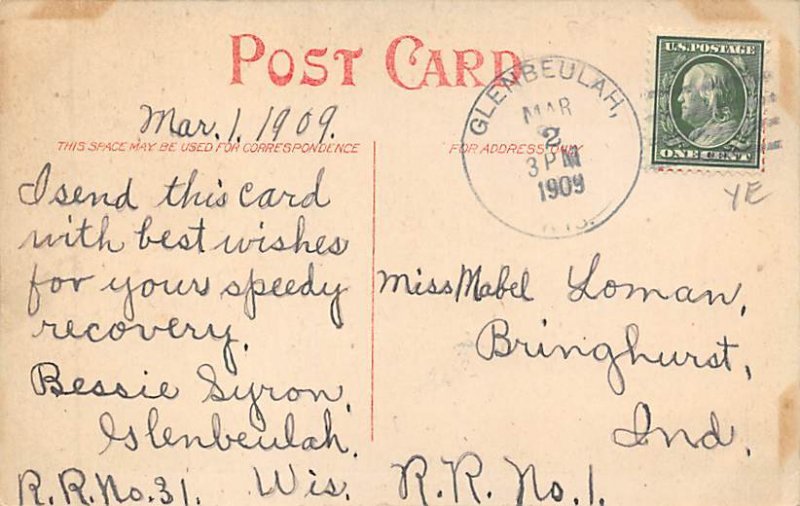 POST CARD
Mar. 1. 1909.
THIS SPACE MAY BE USED FOR CORRESPONDENCE
I send this card
with best wishes
for yours speedy
recovery.
Bessie Syron,
Glenbeulah.
R.R. No. 31. Wis.
FOR ADDRESS ONLY
GLENBEULAH,
MAR
2
3 PM
1909
WIS.
U.S. POSTAGE
ONE CENT
YE
Miss Mabel Loman,
Bringhurst,
Ind.
R.R. No. 1.